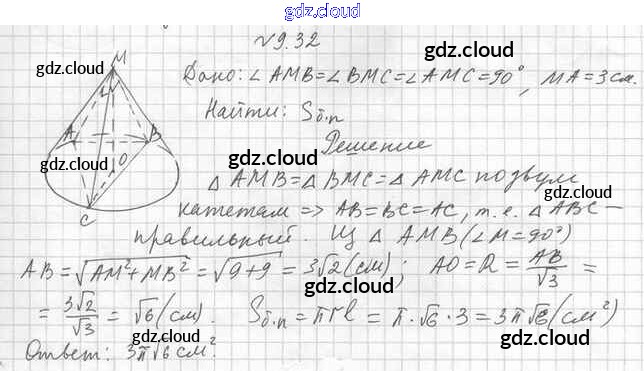 gdz.cloud
√9.32
M
gdz.cloud
gdz.cloud
Дано: ∠AMB=∠BMC=∠AMC=90°, MA=3см.
gdz.cloud
Найти: Sб.п
A B
O
C
gdz.cloud
gdz.cloud
Решение
gdz.cloud
△AMB=△BMC=△AMC по двум
gdz.cloud
катетам => AB=BC=AC, т.е. △ABC –
правильный. Из △AMB(∠M=90°)
gdz.cloud
AB=√AM²+MB² = √9+9 = 3√2(см); AO=R= AB/√3 =
gdz.cloud
= 3√2/√3 = √6(см). Sб.п = πrl = π·√6·3 = 3π√6(см²)
gdz.cloud
gdz.cloud
Ответ: 3π√6 см².
gdz.cloud